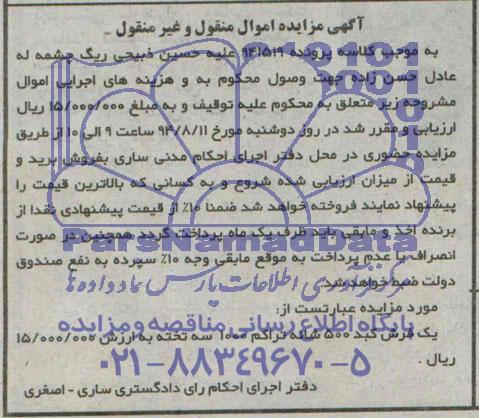 آگهی مزایده اموال منقول و غیر منقول
به موجب کلاسه پرونده ۹۴۱۵۱۹ علیه حسین ذبیحی ریگ چشمه له
عادل حسن زاده جهت وصول محکوم به و هزینه های اجرایی اموال
مشروحه زیر متعلق به محکوم علیه توقیف و به مبلغ ۱۵/۰۰۰/۰۰۰ ریال
ارزیابی و مقرر شد در روز دوشنبه مورخ ۹۴/۸/۱۱ ساعت ۹ الی ۱۰ از طریق
مزایده حضوری در محل دفتر اجرای احکام مدنی ساری بفروش برید و
قیمت از میزان ارزیابی شده شروع و به کسانی که بالاترین قیمت را
پیشنهاد نمایند فروخته خواهد شد ضمنا ۱۰٪ از قیمت پیشنهادی نقدا از
برنده اخذ و مابقی باید ظرف یک ماه پرداخت گردد همچنین در صورت
انصراف یا عدم پرداخت به موقع مابقی وجه ۱۰٪ سپرده به نفع صندوق
دولت ضبط خواهد شد.
مورد مزایده عبارتست از:
یک فرش گبد ۵۰۰ شانه تراکم ۱۰۰۰ سه تخته به ارزش ۱۵/۰۰۰/۰۰۰
ریال .
دفتر اجرای احکام رای دادگستری ساری - اصغری
ParsNamadData
مرکز فرآوری اطلاعات پارس نماد داده ها
پایگاه اطلاع رسانی مناقصه و مزایده
۰۲۱-۸۸۳۴۹۶۷۰-۵